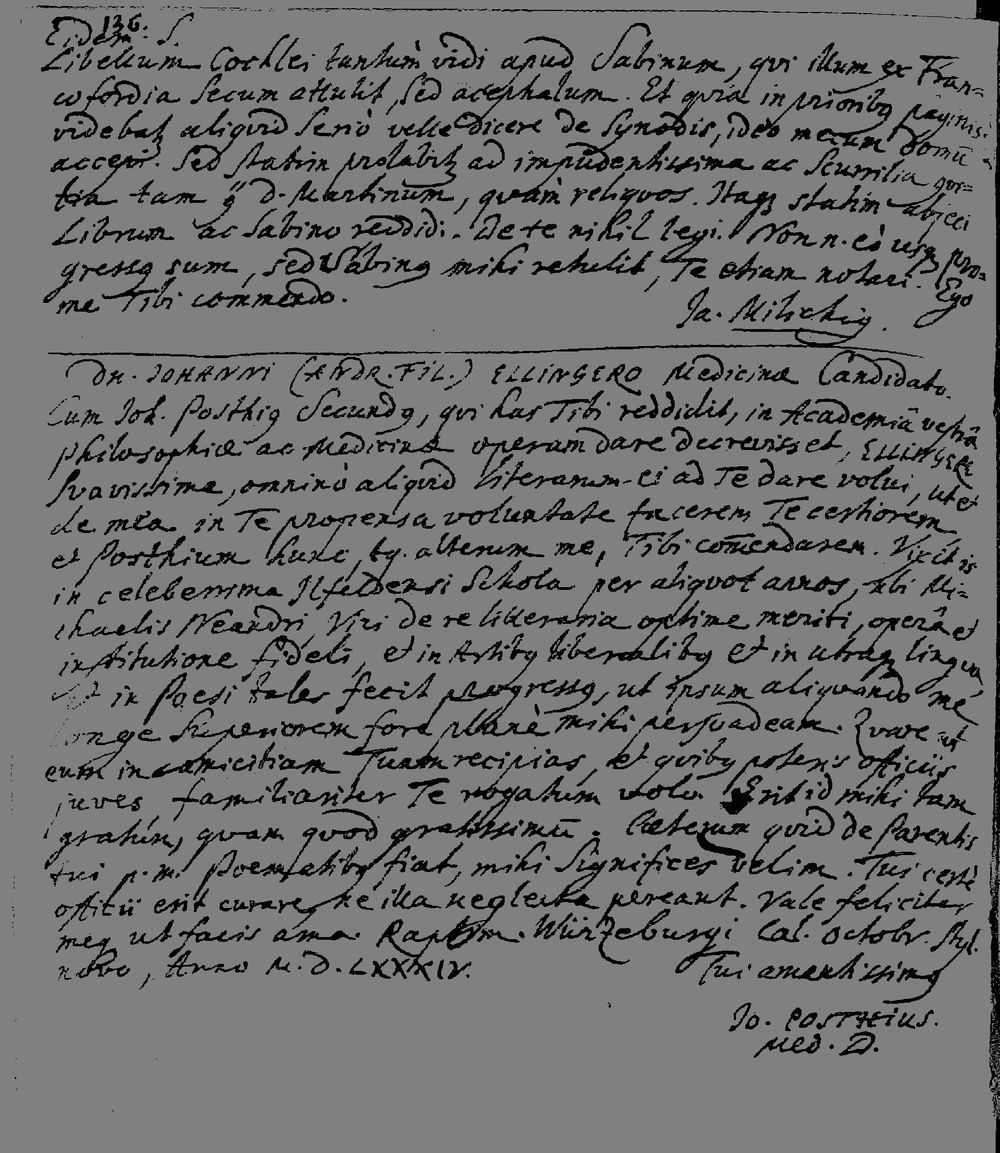 136.
Eidem S.
Libellum Cochlei tantùm vidi apud Sabinum, qui illum ex Fran-
cofordia secum attulit, sed acephalum. Et quia in prioribꝰ paginis
videbatꝫ aliquid seriò velle dicere de Synodis, ideo mecum domū
accepi. Sed statim prolabitꝫ ad impudentissima ac scurrilia
tam d. Martinum, quàm reliquos. Itaqꝫ statim abjeci
Librum ac Sabino reddidi. De te nihil legi. Non n. eò usqꝫ pro-
gressꝰ sum, sed Sabinꝰ mihi retulit, Te etiam notari. Ego
me Tibi commendo.
Ja. Milichiꝰ.
DN. JOHANNI (ANDR. FIL.) ELLINGERO Medicinæ Candidato.
Cum Joh. Posthiꝰ Secundꝰ, qui has Tibi reddidit, in Academiâ vestrâ
Philosophiæ ac Medicinæ operam dare decrevisset, ELLINGERE
Suavissime, omninò aliquid literarum ei ad Te dare volui, ut et
de meâ in Te propensa voluntate facerem Te certiorem
et Posthium hunc, tq. alterum me, Tibi com̄endarem. Vixit is
in celeberrima Ilfeldensi Schola per aliquot annos, ubi Mi-
chaelis Neandri, Viri de re litteraria optime meriti, operâ et
institutione fideli, et in Artibꝰ liberalibꝰ et in utraqꝫ lingua,
et in Poesi tales fecit progressꝰ, ut ipsum aliquando me
longe superiorem fore planè mihi persuadeam. Quare ut
eum in amicitiam Tuam recipias, et quibꝰ poteris officiis
juves familiariter Te rogatum volo. Erit id mihi tam
gratūm, quam quod gratissimū. Cæterum quid de Parentis
tui p. m. Poematibꝰ fiat, mihi significes velim. Tui certè
officii erit curare, ne illa neglecta pereant. Vale feliciter
meqꝫ ut facis ama. Raptim. Würzeburgi Cal. Octobr. Styl.
novo, Anno M. D. LXXXIV.
Tui amantissimꝰ
Jo. POSTHIUS.
Med. D.